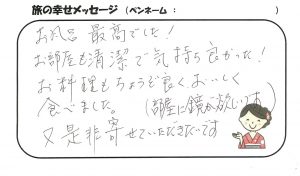 旅の幸せメッセージ（ペンネーム： ）
お風呂 最高でした！
お部屋も清潔で気持ち良かった！
お料理もちょうど良くおいしく
食べました。
（部屋に鏡が欲しいです）
又是非寄せていただきたいです